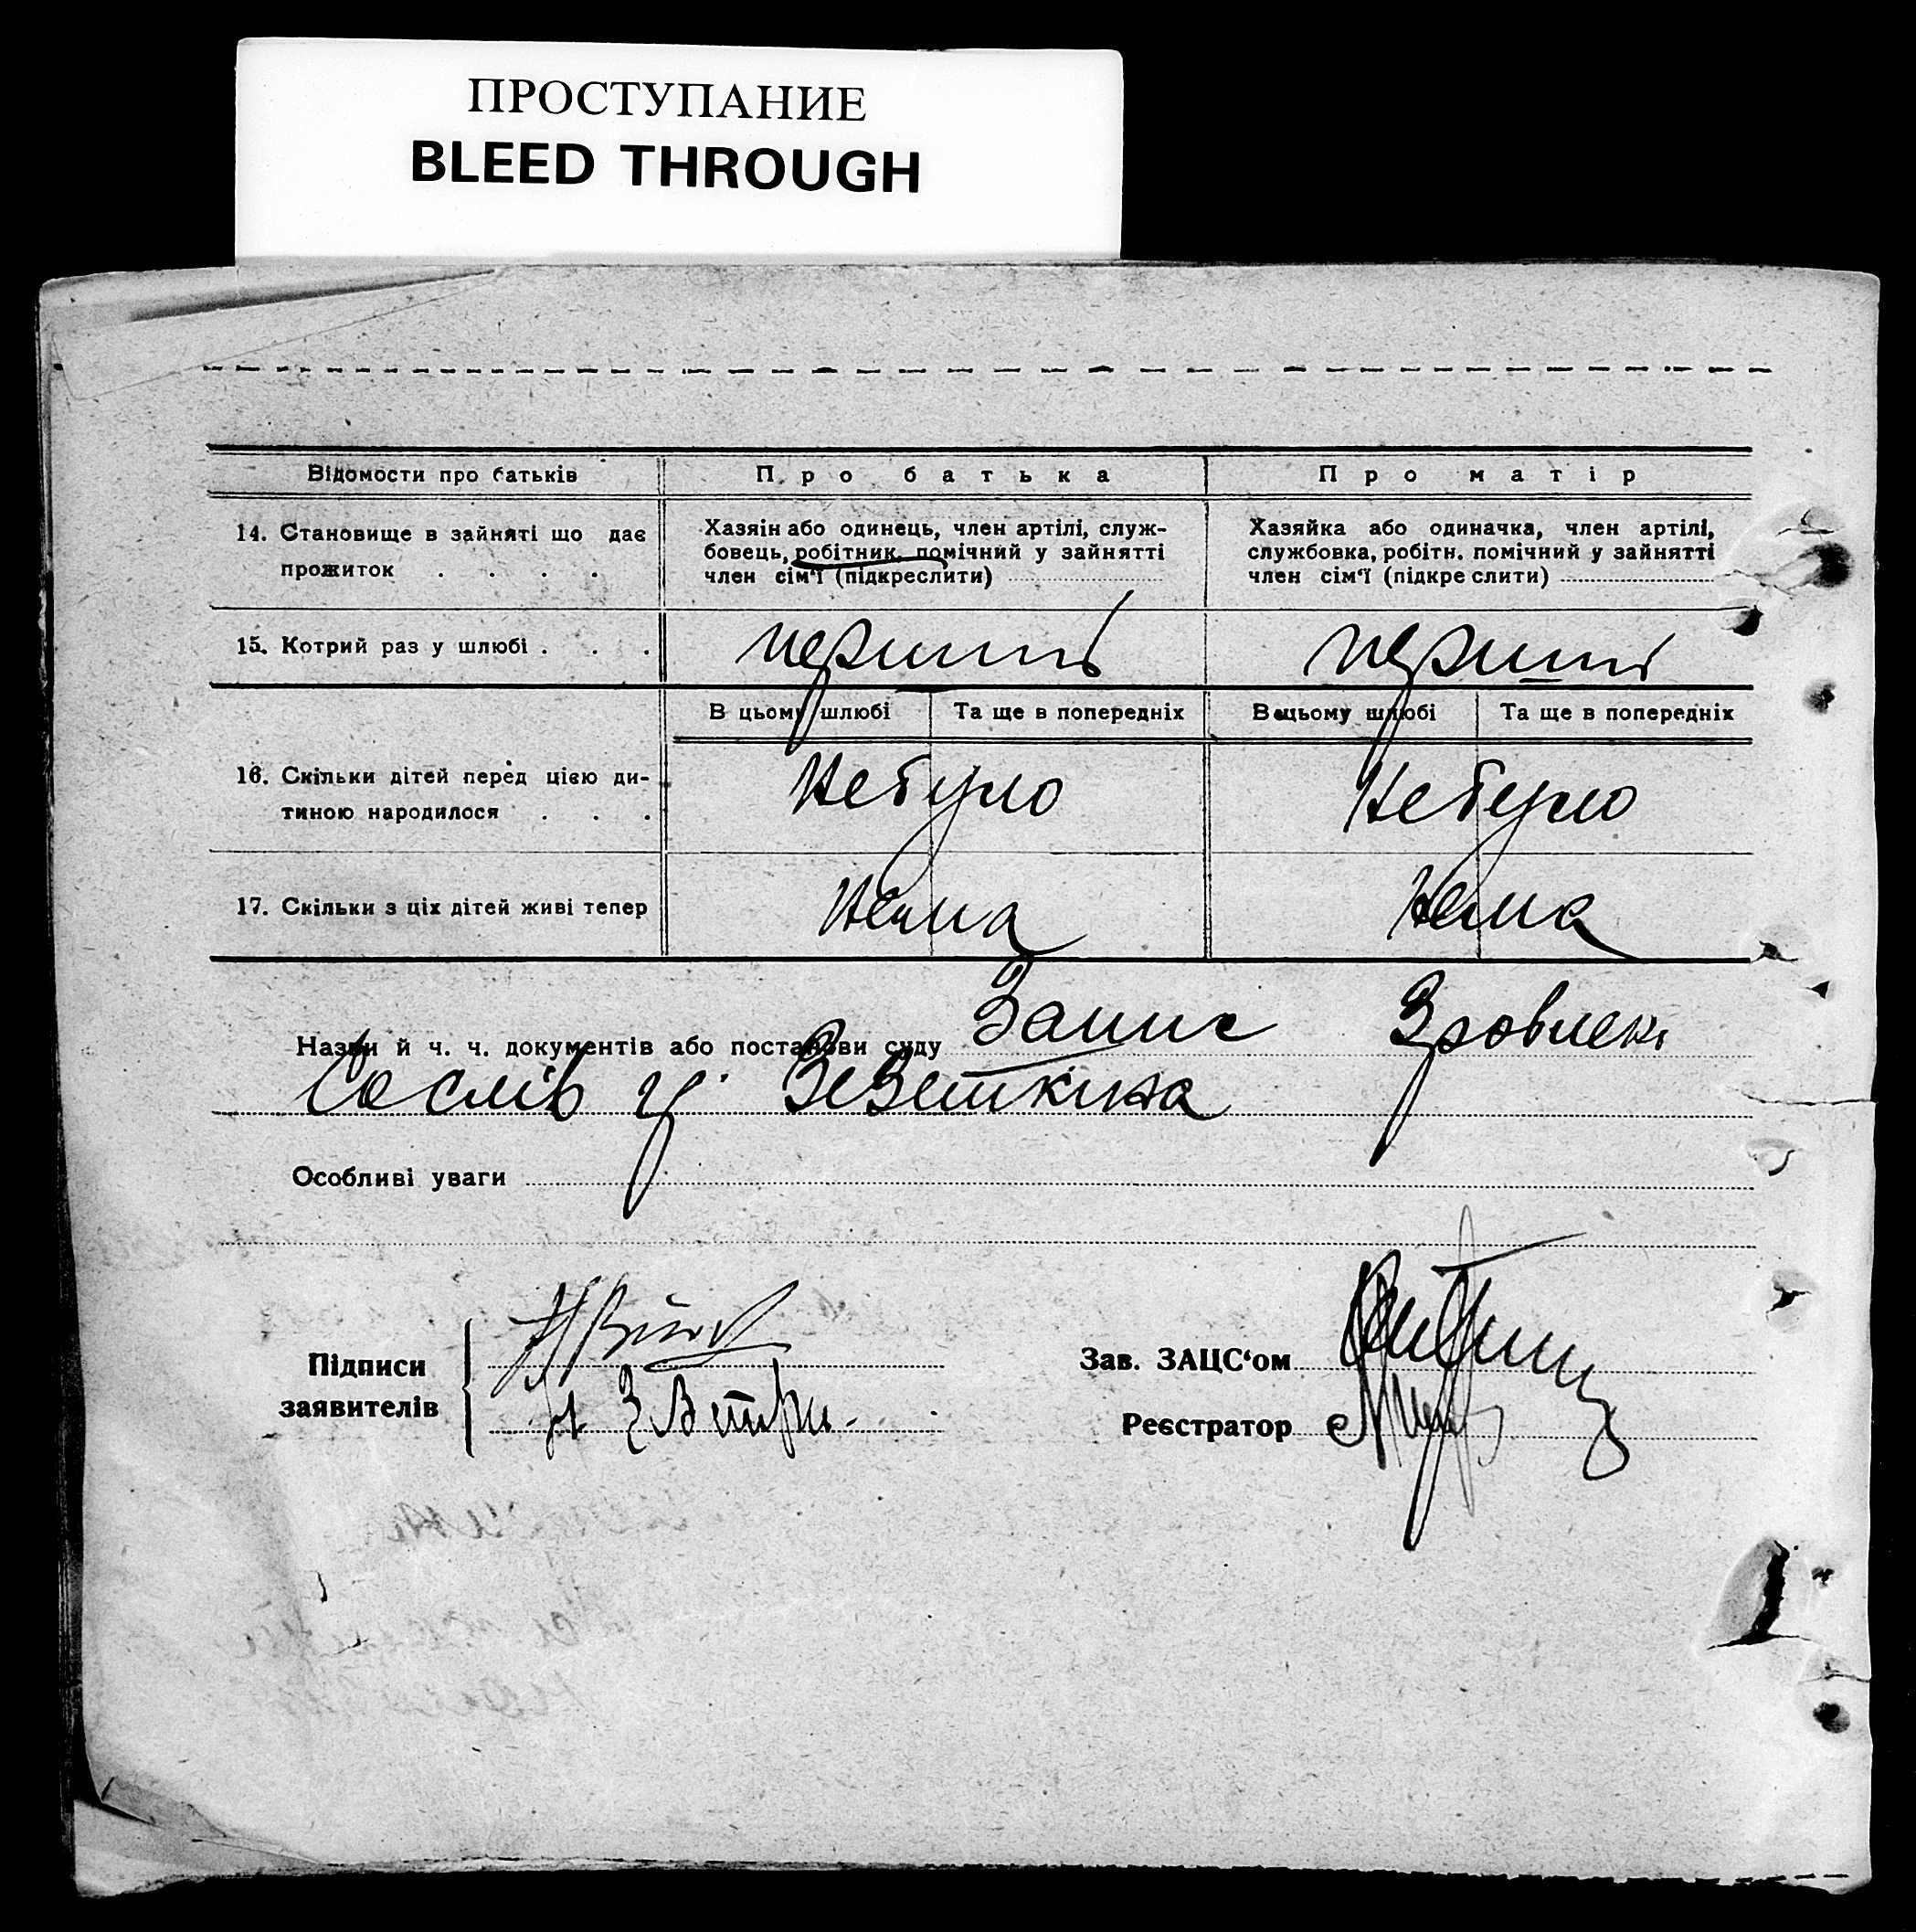 ПРОСТУПАНИЕ
BLEED THROUGH
Відомости про батьків
Про батька
Про матір
14. Становище в зайняті що дає
прожиток . . . .
Хазяін або одинець, член артілі, служ-
бовець, робітник, помічний у зайнятті
член сім'ї (підкреслити)
Хазяйка або одиначка, член артілі,
службовка, робітн. помічний у зайнятті
член сім'ї (підкреслити)
15. Котрий раз у шлюбі . . .
перший
перший
В цьому шлюбі
Та ще в попередніх
В цьому шлюбі
Та ще в попередніх
16. Скільки дітей перед цією ди-
тиною народилося . . .
Небуло
Небуло
17. Скільки з ціх дітей живі тепер
Нема
Нема
Назви й ч. ч. документів або постанови суду Запис Зровлені
Особливі уваги
Підписи
заявителів
Зав. ЗАЦС'ом
Реєстратор